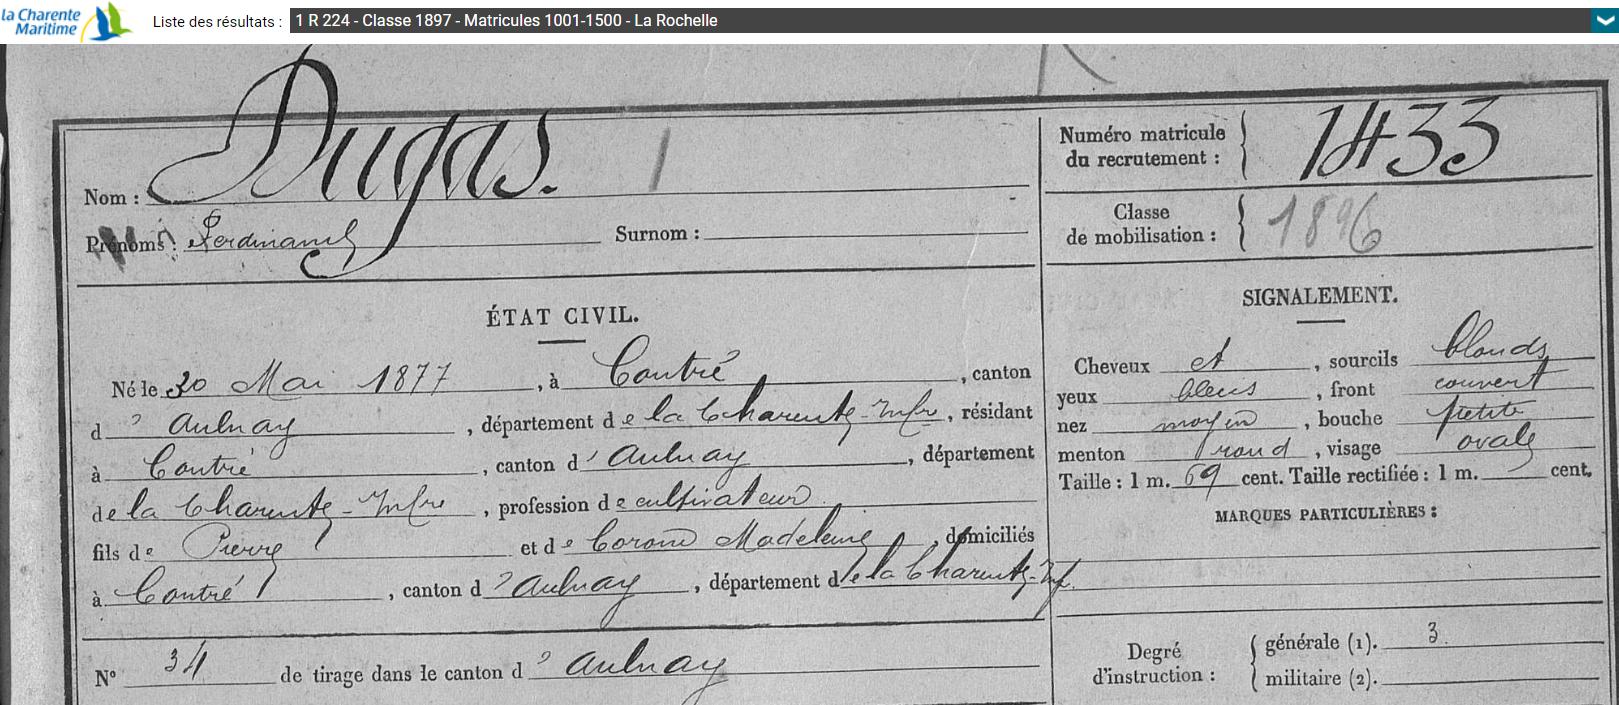 la Charente Maritime
Liste des résultats : 1 R 224 - Classe 1897 - Matricules 1001-1500 - La Rochelle
Nom : Dugas.
Numéro matricule du recrutement : 1433
Prénoms : Ferdinand Surnom :
Classe de mobilisation : 1896
ÉTAT CIVIL.
Né le 20 Mai 1877, à Contré, canton
d'Aulnay, département de la Charente-Infre, résidant
à Contré, canton d'Aulnay, département
de la Charente-Infre, profession de cultivateur
fils de Pierre et de Madeleine, domiciliés
à Contré, canton d'Aulnay, département de la Charente-Inf.
N° 34 de tirage dans le canton d'Aulnay
SIGNALEMENT.
Cheveux et, sourcils blonds
yeux bleus, front couvert
nez moyen, bouche petite
menton rond, visage ovale
Taille : 1 m. 69 cent. Taille rectifiée : 1 m. cent.
MARQUES PARTICULIÈRES :
Degré d'instruction : générale (1). 3.
militaire (2).